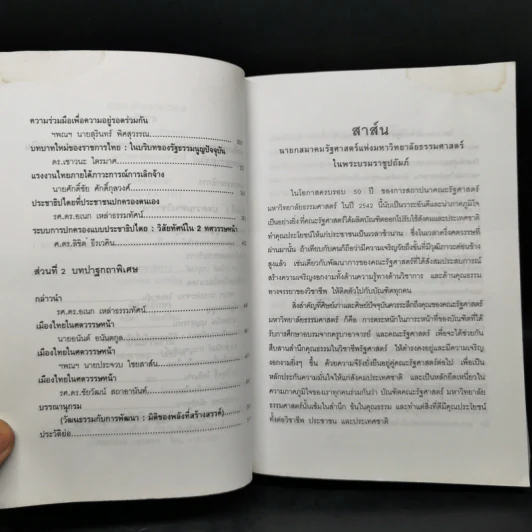 ความร่วมมือเพื่อความอยู่รอดร่วมกัน
ฯพณฯ นายสุรินทร์ พิศสุวรรณ
บทบาทใหม่ของราชการไทย : ในบริบทของรัฐธรรมนูญปัจจุบัน
ดร.เชาวนะ ไตรมาศ
แรงงานไทยภายใต้ภาวะการณ์การเลิกจ้าง
นายศักดิ์ชัย ศักดิ์กุลวงศ์
ประชาธิปไตยที่ประชาชนปกครองตนเอง
รศ.ดร.อเนก เหล่าธรรมทัศน์
ระบบการปกครองแบบประชาธิปไตย : วิสัยทัศน์ใน 2 ทศวรรษหน้า
ศ.ดร.ลิขิต ธีรเวคิน
ส่วนที่ 2 บทปาฐกถาพิเศษ
กล่าวนำ
รศ.ดร.อเนก เหล่าธรรมทัศน์
เมืองไทยในศตวรรษหน้า
นายอนันต์ อนันตกูล
เมืองไทยในศตวรรษหน้า
ฯพณฯ นายประจวบ ไชยสาส์น
เมืองไทยในศตวรรษหน้า
รศ.ดร.ชัยวัฒน์ สถาอานันท์
บรรณานุกรม
(วัฒนธรรมกับการพัฒนา : มิติของพลังที่สร้างสรรค์)
ประวัติย่อ
สาส์น
นายกสมาคมรัฐศาสตร์แห่งมหาวิทยาลัยธรรมศาสตร์
ในพระบรมราชูปถัมภ์
ในโอกาสครบรอบ 50 ปี ของการสถาปนาคณะรัฐศาสตร์
มหาวิทยาลัยธรรมศาสตร์ ในปี 2542 นี้นับเป็นวาระอันยินดีและน่าภาคภูมิใจ
เป็นอย่างยิ่ง ที่คณะรัฐศาสตร์ได้ผลิตบัณฑิตออกไปรับใช้สังคมและประเทศชาติ
ทำคุณประโยชน์ให้แก่ประชาชนเป็นเวลาช้านาน ซึ่งในเวลาครึ่งศตวรรษที่
ผ่านมานั้น ถ้าเทียบกับคนก็ถือว่ามีความเจริญวัยถึงขั้นที่มีวุฒิภาวะค่อนข้าง
สูงแล้ว เช่นเดียวกับพัฒนาการของคณะรัฐศาสตร์ที่ได้สั่งสมประสบการณ์
สร้างความเจริญงอกงามทั้งด้านความรู้ทางด้านวิชาการ และด้านคุณธรรม
ทางจรรยาของวิชาชีพ ให้ติดตัวไปกับบัณฑิตทุกคน
สิ่งสำคัญที่ศิษย์เก่าและศิษย์ปัจจุบันควรระลึกถึงคุณของคณะรัฐศาสตร์
มหาวิทยาลัยธรรมศาสตร์ ก็คือ การตระหนักในภาระหน้าที่ของบัณฑิตที่ได้
รับการศึกษาอบรมจากครูบาอาจารย์ และคณะรัฐศาสตร์ เพื่อจะได้ช่วยกัน
สืบสานสำนึกคุณธรรมในวิชาชีพรัฐศาสตร์ ให้ดำรงคงอยู่และมีความเจริญ
งอกงามยิ่งๆ ขึ้น ด้วยความจีรังยั่งยืนอยู่คู่คณะรัฐศาสตร์ต่อไป เพื่อเป็น
หลักประกันความมั่นใจให้แก่สังคมประเทศชาติ และเป็นหลักยึดเหนี่ยวใน
ความภาคภูมิใจของเราทุกคนร่วมกันว่า บัณฑิตคณะรัฐศาสตร์ มหาวิทยาลัย
ธรรมศาสตร์นั้นเข้มในสำนึก ข้นในคุณธรรม และทำแต่สิ่งที่ดีมีคุณประโยชน์
ทั้งต่อวิชาชีพ ประชาชน และประเทศชาติ